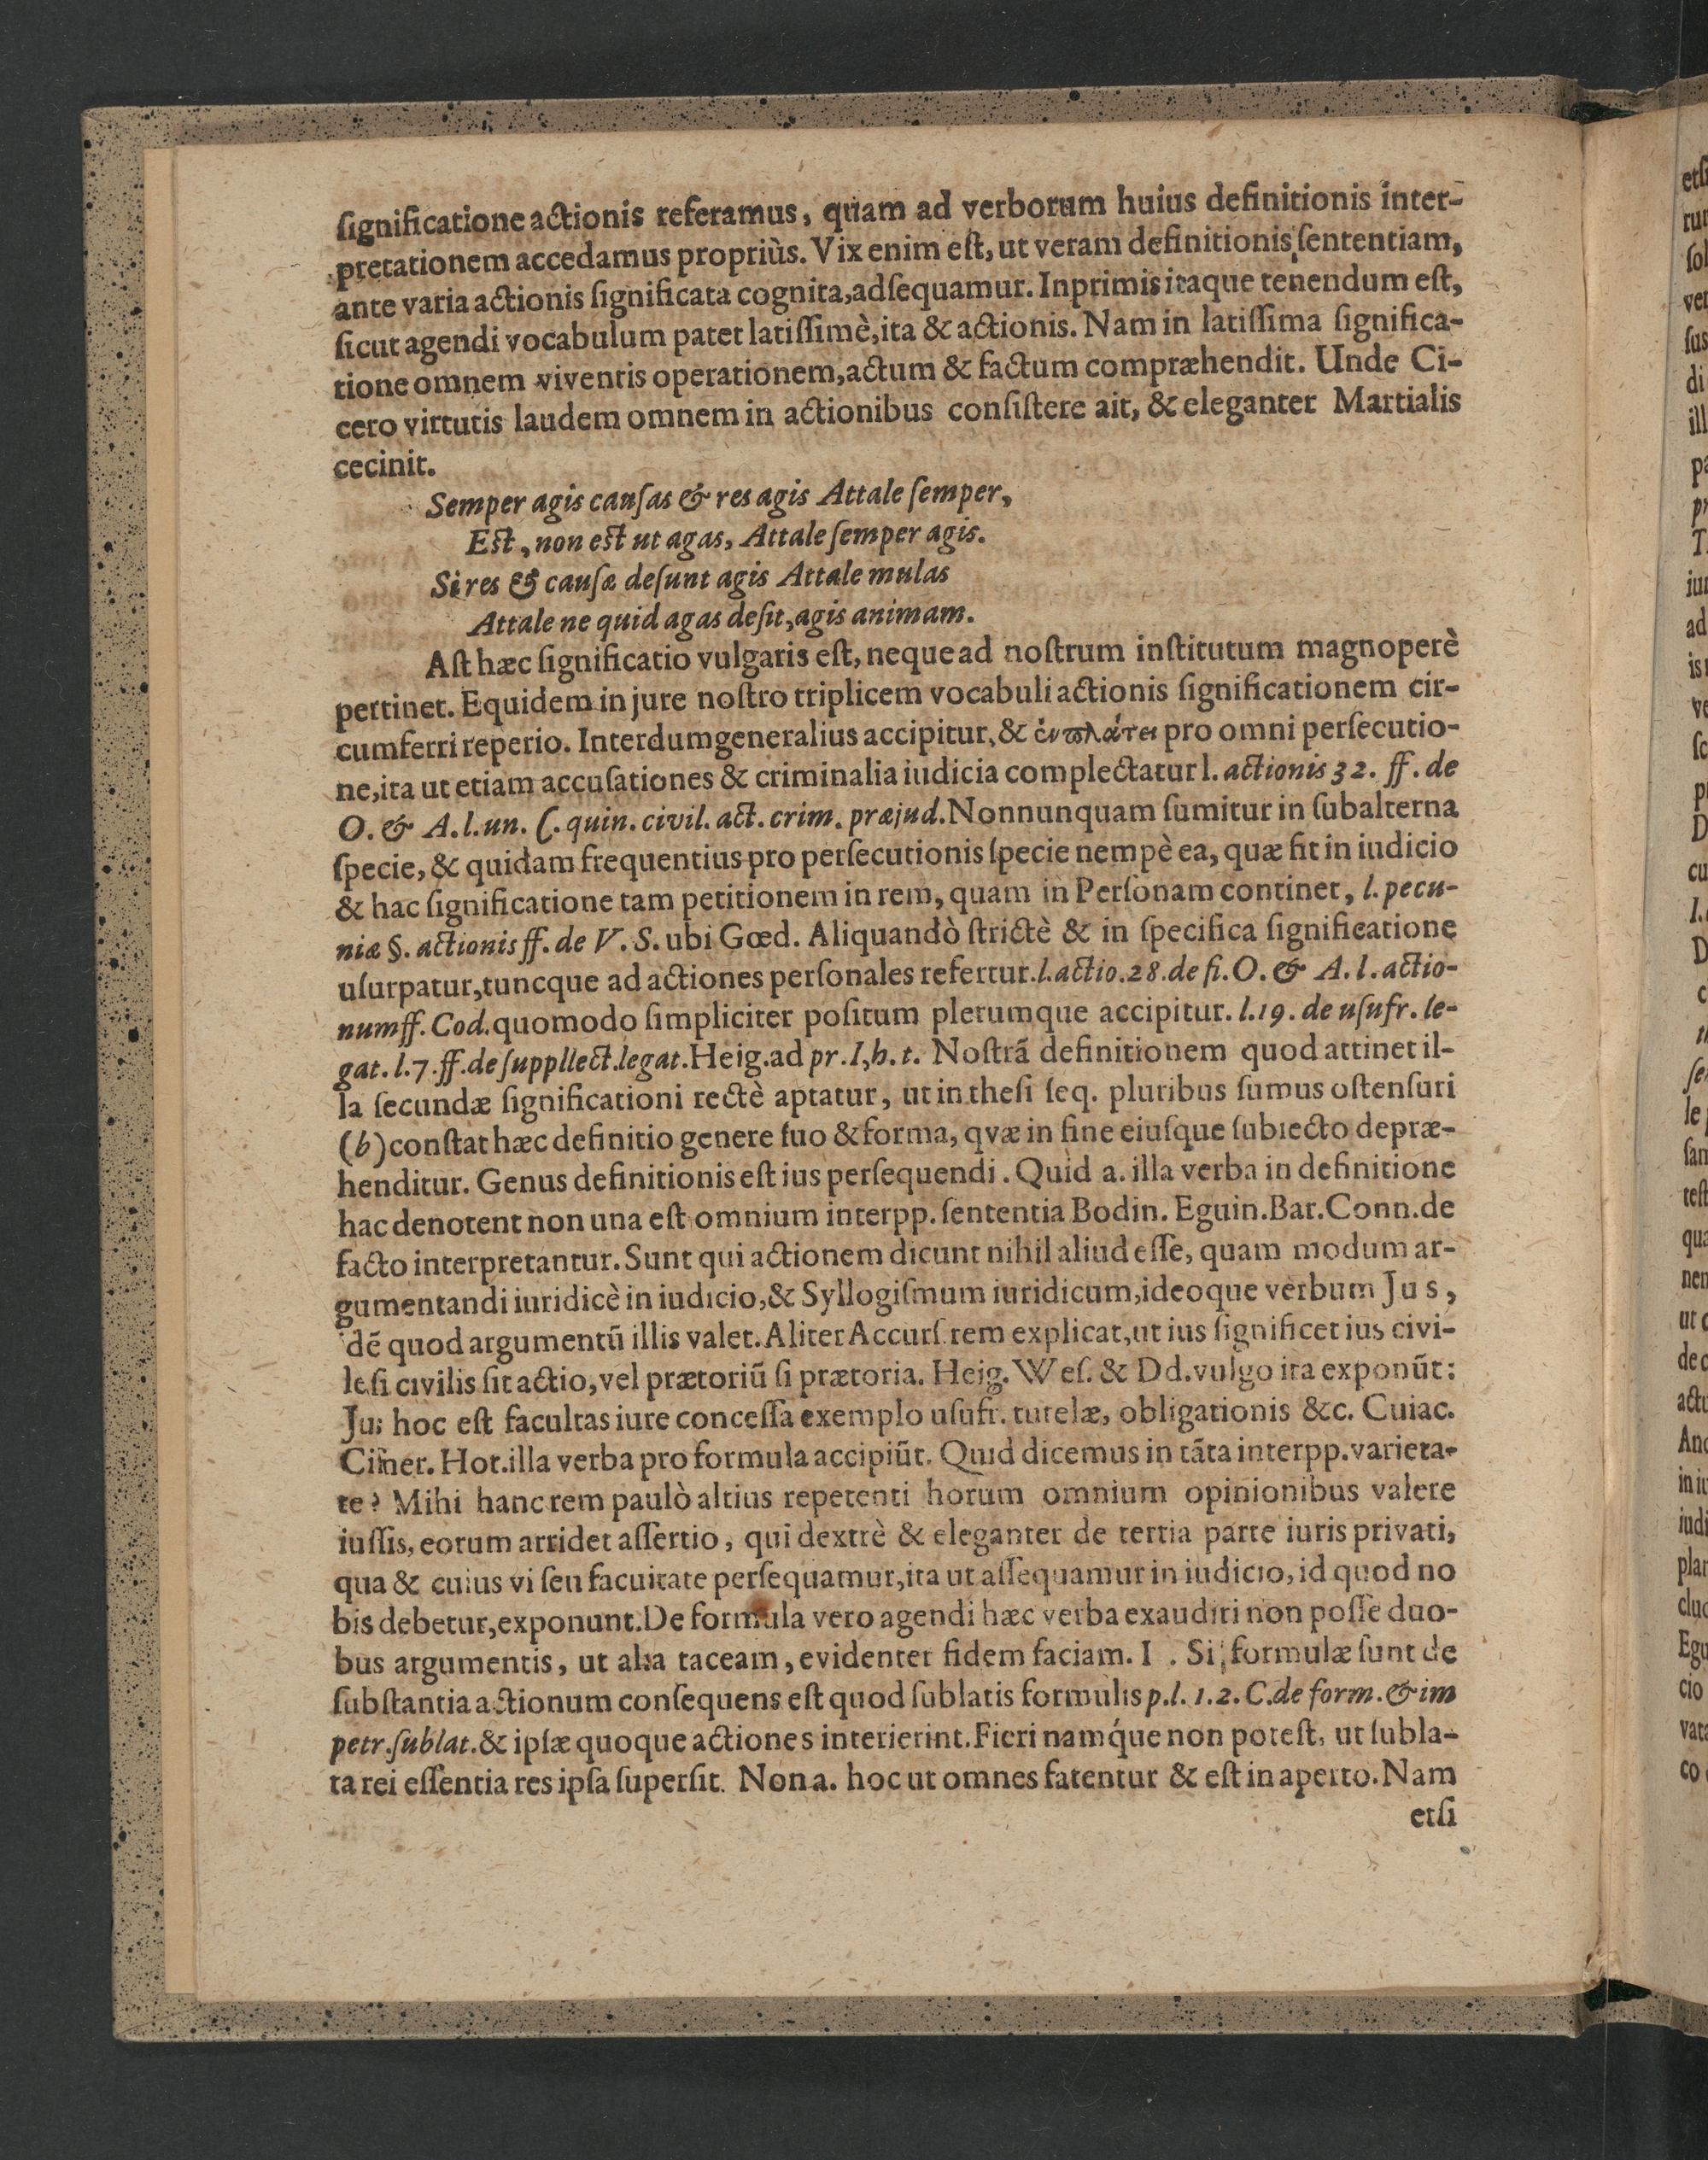 ſignificatione actionis referamus, quam ad verborum huius definitionis inter-
pretationem accedamus propriùs. Vix enim eſt, ut veram definitionis ſententiam,
ante varia actionis ſignificata cognita, adſequamur. Inprimis itaque tenendum eſt,
ſicut agendi vocabulum patet latiſſimè, ita & actionis. Nam in latiſſima ſignifica-
tione omnem viventis operationem, actum & factum compræhendit. Unde Ci-
cero virtutis laudem omnem in actionibus conſiſtere ait, & eleganter Martialis
cecinit.
Semper agis cauſas & res agis Attale ſemper,
Eſt, non eſt ut agas, Attale ſemper agis.
Si res & cauſæ deſunt agis Attale mulas
Attale ne quid agas deſit, agis animam.
Aſt hæc ſignificatio vulgaris eſt, neque ad noſtrum inſtitutum magnoperè
pertinet. Equidem in jure noſtro triplicem vocabuli actionis ſignificationem cir-
cumferri reperio. Interdum generalius accipitur, & ἐν πλάτει pro omni perſecutio-
ne, ita ut etiam accuſationes & criminalia iudicia complectatur l. actionis 32. ff. de
O. & A. l. un. C. quin. civil. act. crim. præjud. Nonnunquam ſumitur in ſubalterna
ſpecie, & quidam frequentius pro perſecutionis ſpecie nempè ea, quæ fit in iudicio
& hac ſignificatione tam petitionem in rem, quam in Perſonam continet, l. pecu-
niæ §. actionis ff. de V. S. ubi Gœd. Aliquandò ſtrictè & in ſpecifica ſignificatione
uſurpatur, tuncque ad actiones perſonales refertur. l. actio. 28. de fi. O. & A. l. actio-
num ff. Cod. quomodo ſimpliciter poſitum plerumque accipitur. l. 19. de uſufr. le-
gat. l. 7. ff. de ſuppllect. legat. Heig. ad pr. I, h. t. Noſtrã definitionem quod attinet il-
la ſecundæ ſignificationi rectè aptatur, ut in theſi ſeq. pluribus ſumus oſtenſuri
(b) conſtat hæc definitio genere ſuo & forma, qvæ in fine eiuſque ſubiecto depræ-
henditur. Genus definitionis eſt ius perſequendi. Quid a. illa verba in definitione
hac denotent non una eſt omnium interpp. ſententia Bodin. Eguin. Bar. Conn. de
facto interpretantur. Sunt qui actionem dicunt nihil aliud eſſe, quam modum ar-
gumentandi iuridicè in iudicio, & Syllogiſmum iuridicum, ideoque verbum Jus,
dẽ quod argumentũ illis valet. Aliter Accurſ. rem explicat, ut ius ſignificet ius civi-
le ſi civilis ſit actio, vel prætoriũ ſi prætoria. Heig. Weſ. & Dd. vulgo ita exponũt:
Jus hoc eſt facultas iure conceſſa exemplo uſufr. tutelæ, obligationis &c. Cuiac.
Cimer. Hot. illa verba pro formula accipiũt. Quid dicemus in tãta interpp. varieta-
te? Mihi hanc rem paulò altius repetenti horum omnium opinionibus valere
iuſſis, eorum arridet aſſertio, qui dextrè & eleganter de tertia parte iuris privati,
qua & cuius vi ſeu facultate perſequamur, ita ut aſſequamur in iudicio, id quod no
bis debetur, exponunt. De formula vero agendi hæc verba exaudiri non poſſe duo-
bus argumentis, ut alia taceam, evidenter fidem faciam. I. Si formulæ ſunt de
ſubſtantia actionum conſequens eſt quod ſublatis formulis p. l. 1. 2. C. de form. & im
petr. ſublat. & ipſæ quoque actiones interierint. Fieri namq́ue non poteſt, ut ſubla-
ta rei eſſentia res ipſa ſuperſit. Non a. hoc ut omnes fatentur & eſt in aperto. Nam
etſi